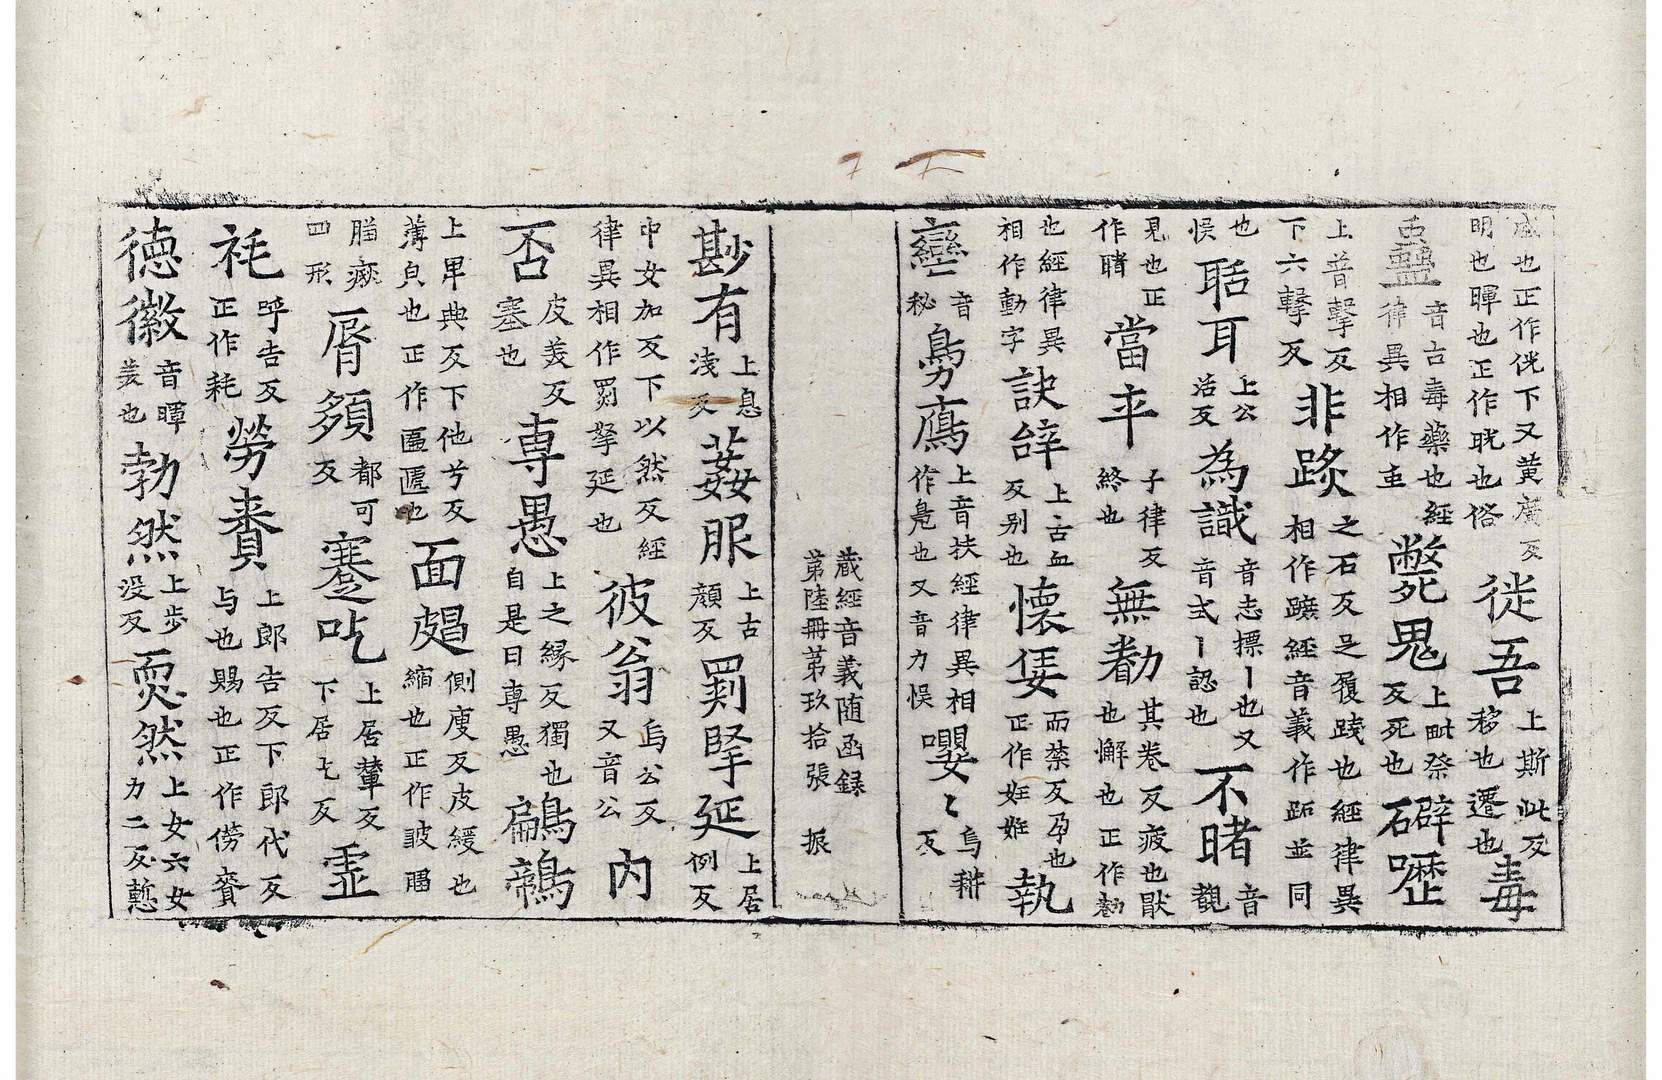 盛也正作侊下又黄廣反
明也暉也正作晄也俗徙吾上斯此反
移也遷也毒
蠱音古毒藥也經
律異相作蛊斃鬼上毗祭
反死也礔𡃤
上普擊反
下六擊反非跡之石反足履踐也經律異
相作蹠經音義作跖並同
也
悮聒耳上公
活反為識音志摽丨也又
音式丨認也不睹音
觀
見也正
作睹當卒子律反
終也無勌其卷反疲也猒
也懈也正作勌
也經律異
相作動字訣辝上古血
反别也懷㑴而禁反孕也
正作妊姙執
音
秘鳬鴈上音扶經律異相
作鳧也又音力悮嚶〻烏耕
反
藏經音義随函録
第陸冊第玖拾張 振
尠有上息
淺反姦服上古
顔反罽𦋺延上居
例反
中女加反下以然反經
律異相作罽拏延也彼翁烏公反
又音公内
否皮美反
塞也専愚上之縁反獨也
自是曰専愚鶣鶙
上卑典反下他兮反
薄皃也正作匾㔸也面皺側廋反皮緩也
縮也正作皱𦠆
腦瘢
四形脣顡都可
反蹇吃上居輦反
下居乞反霊
秏呼告反
正作耗勞賚上郎告反下郎代反
与也賜也正作僗賚
徳徽音暉
美也勃然上步
没反恧然上女六女
力二反慙